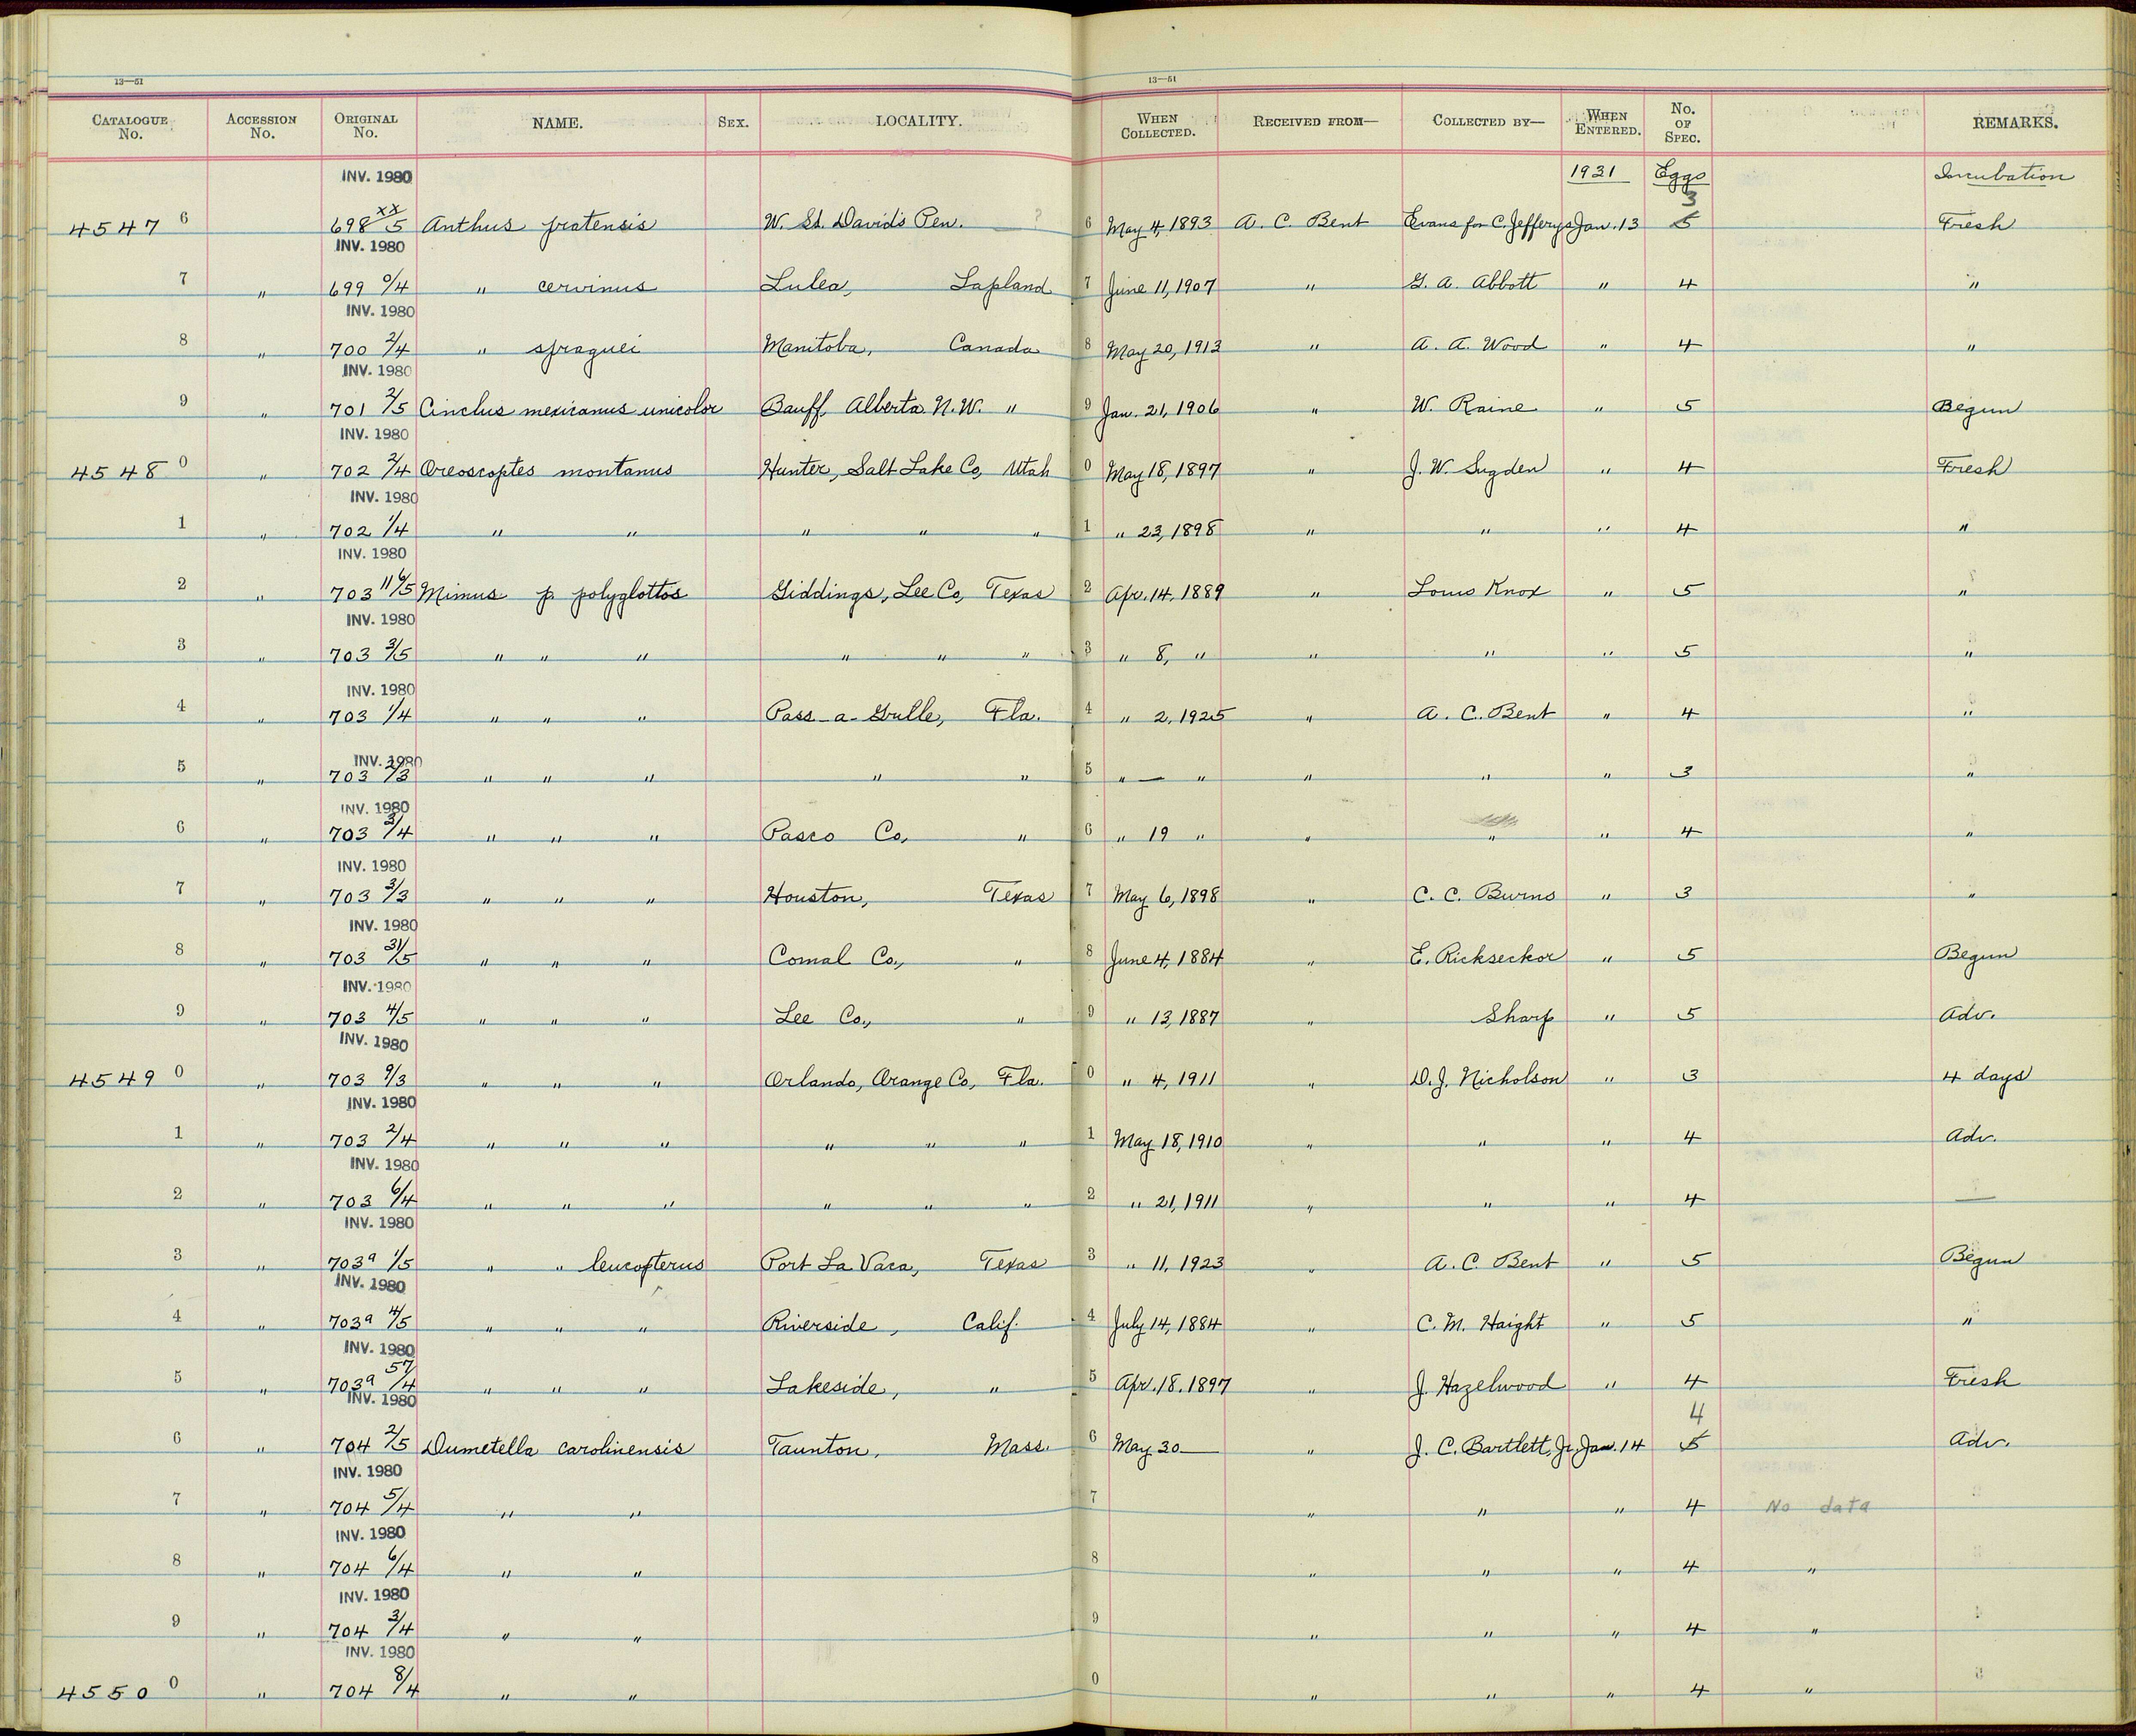 13—51 13—51
CATALOGUE No. ACCESSION No. ORIGINAL No. NAME. SEX. LOCALITY. WHEN COLLECTED. RECEIVED FROM— COLLECTED BY— WHEN ENTERED. No. OF SPEC. REMARKS.
INV. 1980 1931 Eggs Incubation
4547 6 698 xx/5 Anthus pratensis W. St. David's Pen. ? 6 May 4, 1893 A. C. Bent Evans for C. Jefferys Jan. 13 3 5 Fresh
INV. 1980
7 " 699 0/4 " cervinus Lulea, Lapland 7 June 11, 1907 " G. A. Abbott " 4 "
INV. 1980
8 " 700 2/4 " spraguei Manitoba, Canada 8 May 20, 1913 " A. A. Wood " 4 "
INV. 1980
9 " 701 2/5 Cinclus mexicanus unicolor Banff, Alberta N.W. " 9 Jan. 21, 1906 " W. Raine " 5 Begun
INV. 1980
4548 0 " 702 2/4 Oreoscoptes montanus Hunter, Salt Lake Co, Utah 0 May 18, 1897 " J. W. Sugden " 4 Fresh
INV. 1980
1 " 702 1/4 " " " " " 1 " 23, 1898 " " " 4 "
INV. 1980
2 " 703 11 6/5 Mimus p. polyglottos Giddings, Lee Co, Texas 2 Apr. 14, 1889 " Louis Knox " 5 "
INV. 1980
3 " 703 3/5 " " " " " " 3 " 8, " " " " 5 "
INV. 1980
4 " 703 1/4 " " " Pass-a-Grulle, Fla. 4 " 2, 1925 " A. C. Bent " 4 "
INV. 1980
5 " 703 2/3 " " " " " 5 " — " " " " 3 "
INV. 1980
6 " 703 3/4 " " " Pasco Co, " 6 " 19 " " " " 4 "
INV. 1980
7 " 703 3/3 " " " Houston, Texas 7 May 6, 1898 " C. C. Burns " 3 "
INV. 1980
8 " 703 31/5 " " " Comal Co., " 8 June 4, 1884 " E. Rickseckor " 5 Begun
INV. 1980
9 " 703 4/5 " " " Lee Co., " 9 " 13, 1887 " Sharp " 5 Adv.
INV. 1980
4549 0 " 703 9/3 " " " Orlando, Orange Co, Fla. 0 " 4, 1911 " D. J. Nicholson " 3 4 days
INV. 1980
1 " 703 2/4 " " " " " " 1 May 18, 1910 " " " 4 Adv.
INV. 1980
2 " 703 6/4 " " " " " " 2 " 21, 1911 " " " 4 —
INV. 1980
3 " 703a 1/5 " " leucopterus Port La Vaca, Texas 3 " 11, 1923 " A. C. Bent " 5 Begun
INV. 1980
4 " 703a 4/5 " " " Riverside, Calif. 4 July 14, 1884 " C. M. Haight " 5 "
INV. 1980
5 " 703a 57/4 " " " Lakeside, " 5 Apr. 18. 1897 " J. Hazelwood " 4 Fresh
INV. 1980
6 " 704 2/5 Dumetella carolinensis Taunton, Mass. 6 May 30 — " J. C. Bartlett, Jr. Jan. 14 4 5 Adv.
INV. 1980
7 " 704 5/4 " " 7 " " " 4 No data
INV. 1980
8 " 704 6/4 " " 8 " " " 4 "
INV. 1980
9 " 704 3/4 " " 9 " " " 4 "
INV. 1980
4550 0 " 704 8/4 " " 0 " " " 4 "